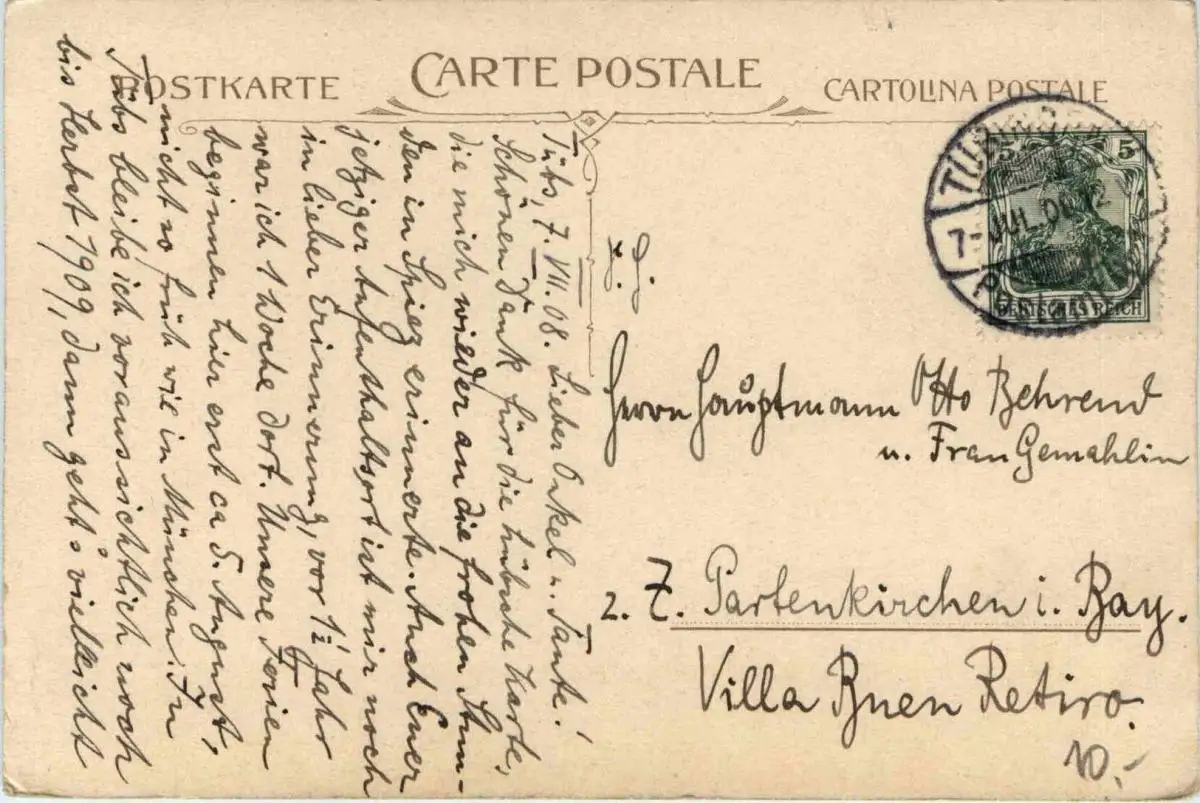 POSTKARTE
CARTE POSTALE
CARTOLINA POSTALE
5 5
DEUTSCHES REICH
7. JUL. 08. 12
Tübs, 7. VII. 08. Lieber Onkel u. Tante!
Schönen Dank für die hübsche Karte,
die mich wieder an die frohen Stun-
den in Spiez erinnerte. Auch Euer
jetziger Aufenthaltsort ist mir noch
in lieber Erinnerung, vor 1½ Jahr
war ich 1 Woche dort. Unsere Ferien
beginnen hier erst ca 5. August,
nicht so früh wie in München. In
Tübs bleibe ich voraussichtlich noch
bis Herbst 1909, dann geht's vielleicht
Herrn Hauptmann Otto Behrend
u. Frau Gemahlin
z. Z. Partenkirchen i. Bay.
Villa Buen Retiro.
10.-